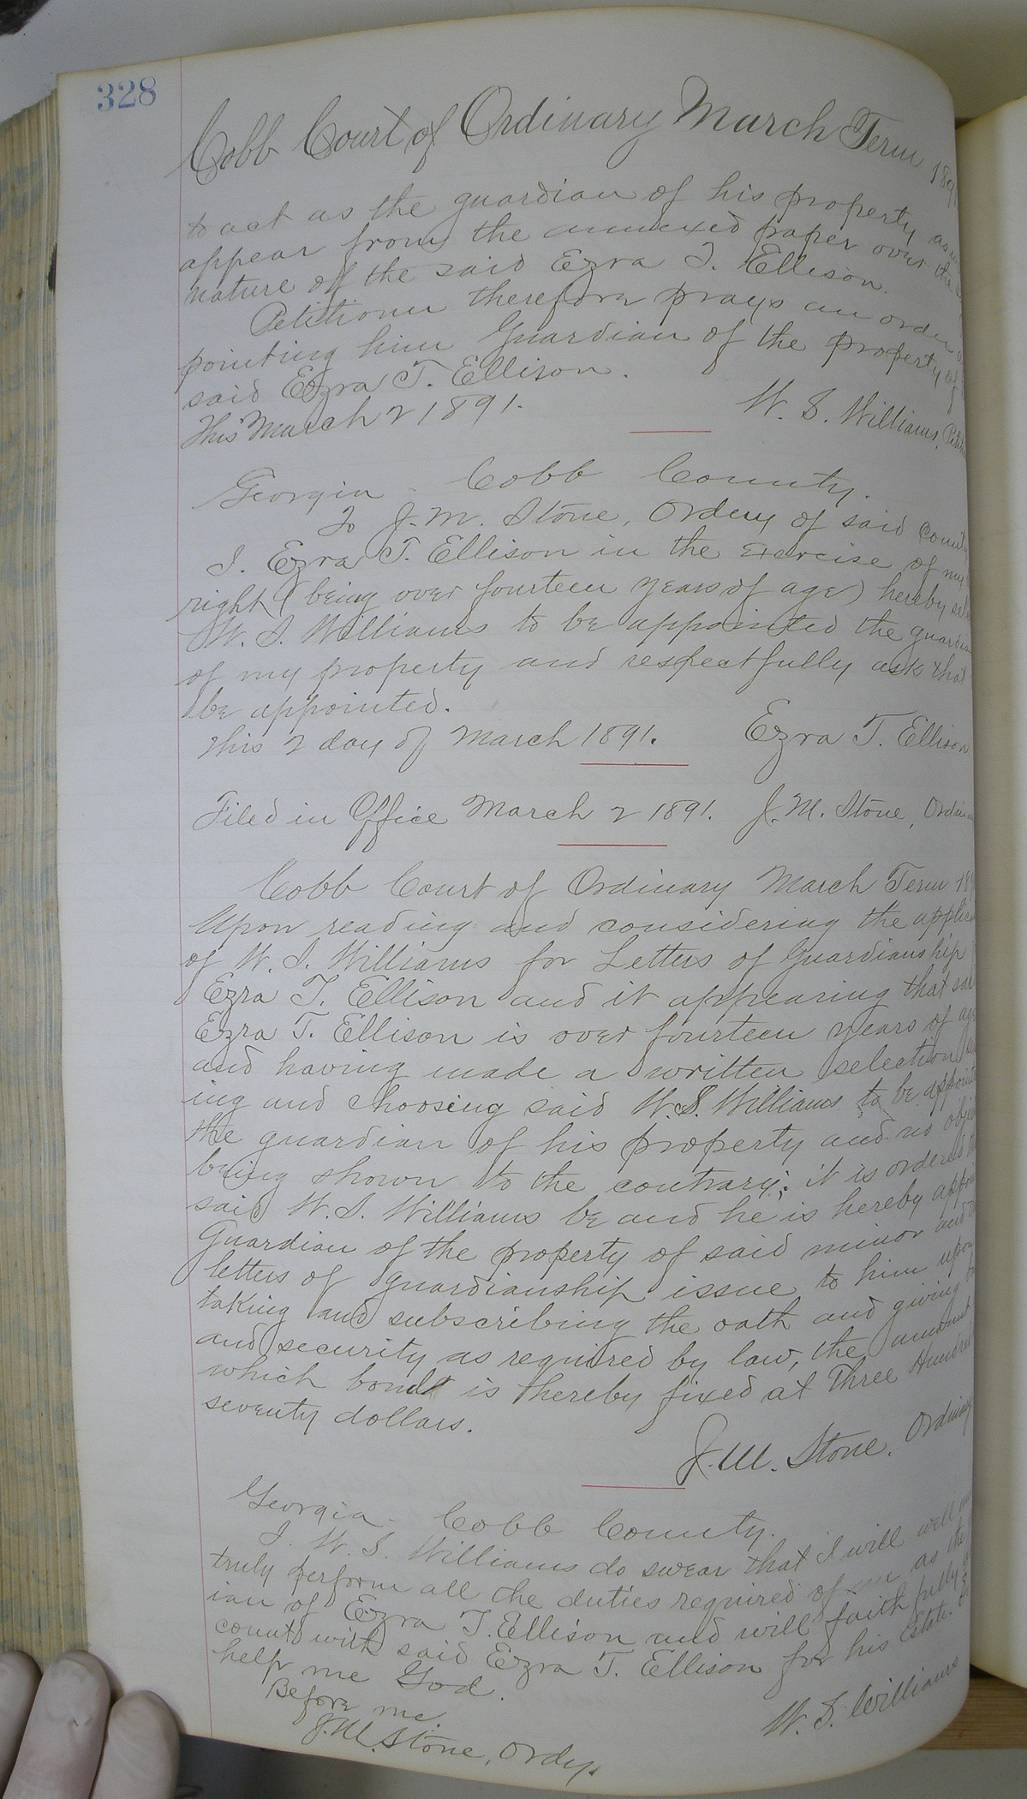 328
Cobb Court of Ordinary March Term 189
to act as the guardian of his property as
appear from the annexed paper over the
nature of the said Ezra T. Ellison.
Petitioner therefore prays an order
pointing him Guardian of the property of
said Ezra T. Ellison.
This March 2 1891.
W. S. Williams,
Georgia Cobb County.
To J. M. Stone, Ordny of said County
I. Ezra T. Ellison in the exercise of my
right (being over fourteen years of age) hereby
W. S. Williams to be appointed the guardian
of my property and respectfully ask that
be appointed.
This 2 day of March 1891. Ezra T. Ellison
Filed in Office March 2 1891. J. M. Stone,
Cobb Court of Ordinary March Term 18
Upon reading and considering the applica
of W. S. Williams for Letters of Guardianship
Ezra T. Ellison and it appearing that
Ezra T. Ellison is over fourteen years of age
and having made a written selection
ing and choosing said W. S. Williams to be appoint
the guardian of his property and no obje
being shown to the contrary; it is ordered
said W. S. Williams be and he is hereby appoi
Guardian of the property of said minor and
letters of guardianship issue to him upon
taking and subscribing the oath and giving
and security as required by law, the amount
which bond is hereby fixed at Three Hundred
seventy dollars.
J. M. Stone. Ordinary
Georgia Cobb County.
I. W. S. Williams do swear that I will well
truly perform all the duties required of me as the
ian of Ezra T. Ellison and will faithfully
count with said Ezra T. Ellison for his Estate.
help me God.
Before me. W. S. Williams
J. M. Stone, Ordny.